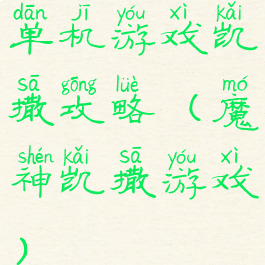 dān jī yóu xì kǎi
单机游戏凯
sā gōng lüè mó
撒攻略(魔
shén kǎi sā yóu xì
神凯撒游戏
)